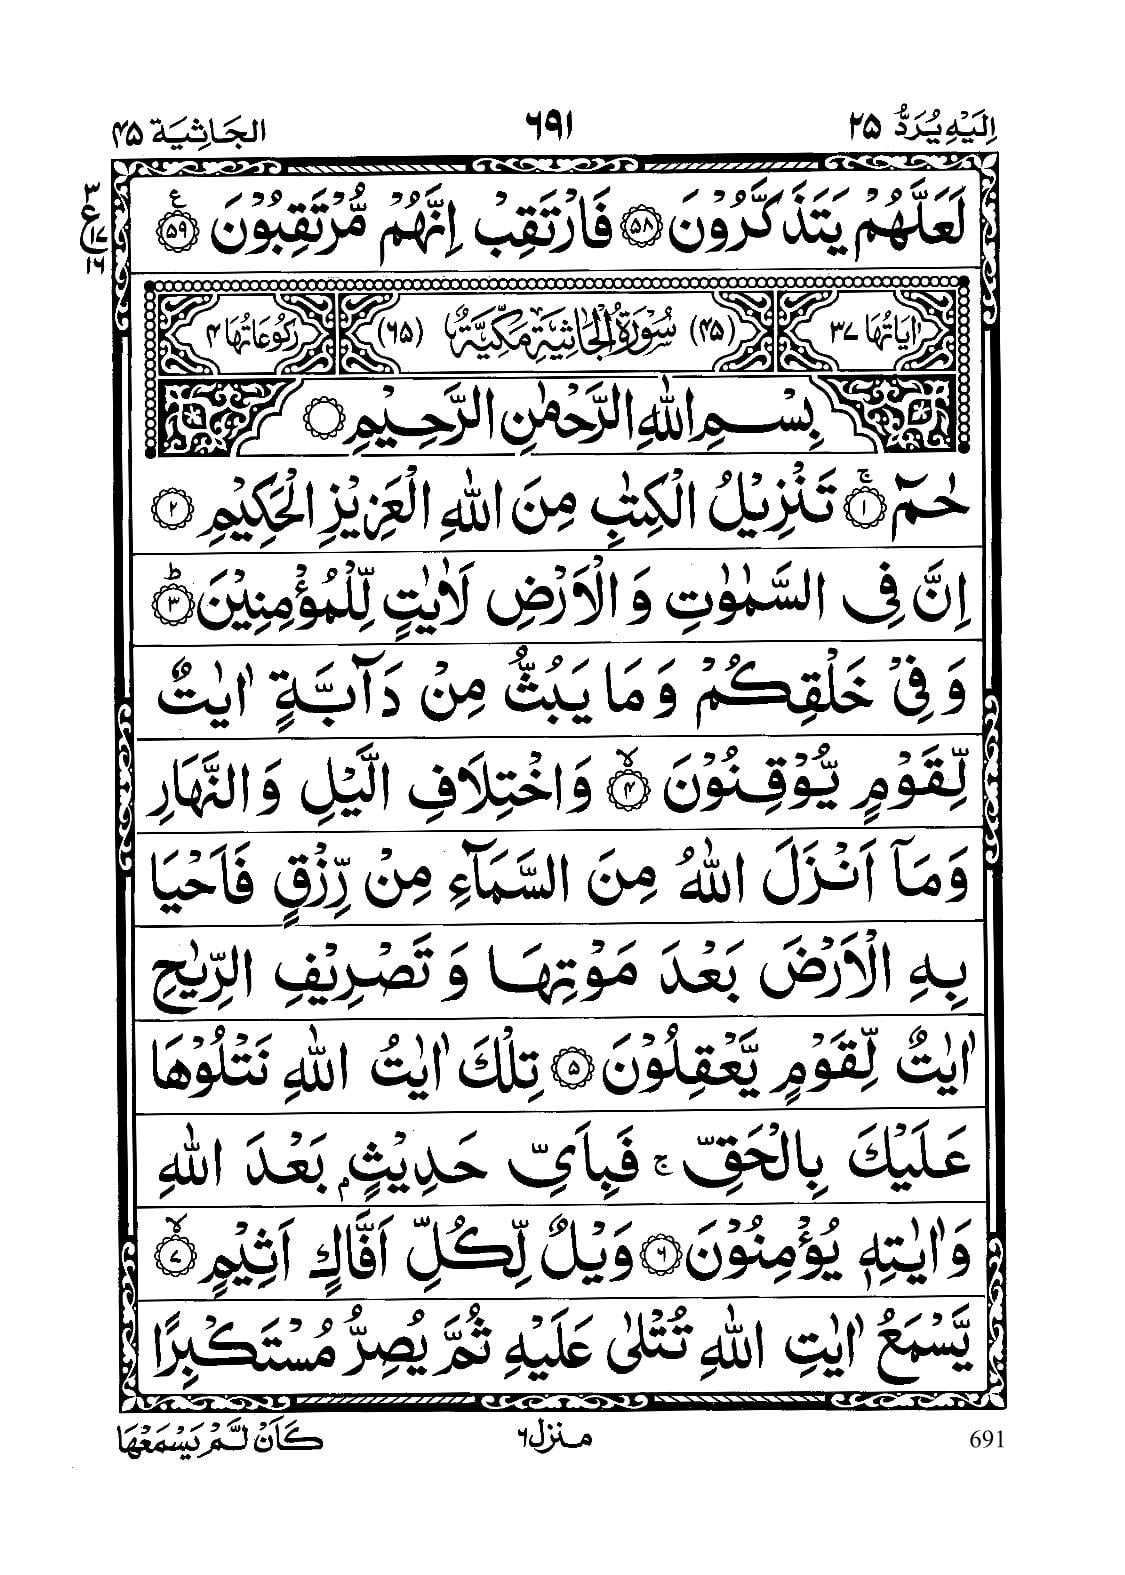 اِلَيْهِ يُرَدُّ ۲۵
۶۹۱
الجَاثِيَة ۴۵
لَعَلَّهُمْ يَتَذَكَّرُوْنَ ﴿۵۸﴾ فَارْتَقِبْ اِنَّهُمْ مُّرْتَقِبُوْنَ ﴿۵۹﴾ ع
۳
ع
۱۷
۱۶
اٰيَاتُهَا ۳۷
(۴۵) سُوْرَةُ الْجَاثِيَةِ مَكِّيَّةٌ (۶۵)
رُكُوْعَاتُهَا ۴
بِسْمِ اللّٰهِ الرَّحْمٰنِ الرَّحِيْمِ
حٰمٓ ﴿۱﴾ ج تَنْزِيْلُ الْكِتٰبِ مِنَ اللّٰهِ الْعَزِيْزِ الْحَكِيْمِ ﴿۲﴾
اِنَّ فِى السَّمٰوٰتِ وَ الْاَرْضِ لَاٰيٰتٍ لِّلْمُؤْمِنِيْنَ ﴿۳﴾ ط
وَ فِيْ خَلْقِكُمْ وَ مَا يَبُثُّ مِنْ دَآبَّةٍ اٰيٰتٌ
لِّقَوْمٍ يُّوْقِنُوْنَ ﴿۴﴾ لا وَ اخْتِلَافِ الَّيْلِ وَ النَّهَارِ
وَ مَاۤ اَنْزَلَ اللّٰهُ مِنَ السَّمَآءِ مِنْ رِّزْقٍ فَاَحْيَا
بِهِ الْاَرْضَ بَعْدَ مَوْتِهَا وَ تَصْرِيْفِ الرِّيٰحِ
اٰيٰتٌ لِّقَوْمٍ يَّعْقِلُوْنَ ﴿۵﴾ تِلْكَ اٰيٰتُ اللّٰهِ نَتْلُوْهَا
عَلَيْكَ بِالْحَقِّ ج فَبِاَىِّ حَدِيْثٍۭ بَعْدَ اللّٰهِ
وَ اٰيٰتِهٖ يُؤْمِنُوْنَ ﴿۶﴾ وَيْلٌ لِّكُلِّ اَفَّاكٍ اَثِيْمٍ ﴿۷﴾ لا
يَّسْمَعُ اٰيٰتِ اللّٰهِ تُتْلٰى عَلَيْهِ ثُمَّ يُصِرُّ مُسْتَكْبِرًا
691
منزل ۶
كَاَنْ لَّمْ يَسْمَعْهَا